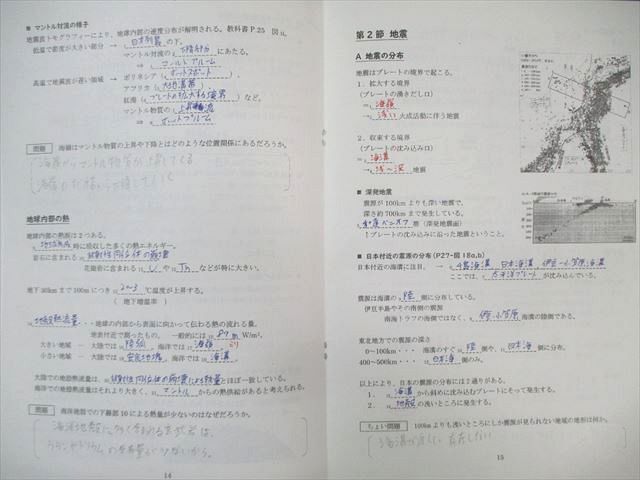 ■ マントル対流の様子
地震波トモグラフィーにより、地球内部の速度分布が解明される。教科書P.25 図11。
低温で密度が大きい部分 → 日本列島 の下。
マントル対流の 下降部分 にあたる。
⇒ コールドプルーム
高温で地震波が遅い領域 → ポリネシア( ホットスポット )
アフリカ( 大地溝帯 )
紅海( プレートの拡大する境界 ) など。
マントル物質の 上昇 流
⇒ ホットプルーム
問題 海嶺はマントル物質の上昇や下降とはどのような位置関係にあるだろうか。
海嶺からマントル物質が上昇してくる
地球内部の熱
地球内部の熱源は2つある。
地球形成 時に吸収した多くの熱エネルギー。
岩石に含まれる 放射性同位体の崩壊
花崗岩に含まれる U や Th などが特に大きい。
地下30kmまで100mにつき 2~3 ℃温度が上昇する。
(地下増温率)
地殻熱流量・・・地球の内部から表面に向かって伝わる熱の流れる量。
地表付近で測ったもの。一般的には 87m W/m²。
大きい地域 － 大陸では、海洋では 海嶺
小さい地域 － 大陸では 安定地塊、海洋では 海溝
大陸での地殻熱流量は、放射性同位体の崩壊による熱量とほぼ一致している。
海洋での地殻熱流量はそれより大きく、 マントル からの熱供給があると考えられる。
問題 海洋地殻での下部 による熱量が少ないのはなぜだろうか。
海洋地殻に多く含まれる玄武岩は、
ウランやトリウムの含有量が少ないから。
14
第2節 地震
A 地震の分布
地震はプレートの境界で起こる。
1．拡大する境界
(プレートの湧きだし口)
= 海嶺
→ 浅い 火成活動に伴う地震
2．収束する境界
(プレートの沈み込み口)
= 海溝
→ 浅～深 地震
■ 深発地震
震源が100kmよりも深い地震で、
深さ約700kmまで発生している。
和達ベニオフ 帯(深発地震面)
↑プレートの沈み込みに沿った地震ということ。
■ 日本付近の震源の分布(P27-図18a,b)
日本付近の海溝に注目。→ 千島海溝 日本海溝 伊豆－小笠原海溝
ここでは、太平洋プレート が沈み込んでいる。
震源は海溝の 陸 側に分布している。
伊豆半島やその南側の震源
南海トラフの海側ではなく、伊豆小笠原 海溝の陸側である。
東北地方での震源の深さ
0～100km・・・ 海溝のすぐ 陸 側や、 日本海 側に分布。
400～500km・・・ 日本海 側のみ。
以上により、日本の震源の分布には2通りがある。
1. 海溝 から斜めに沈み込むプレートにそって発生する。
2. 地殻 の浅いところに発生する。
ちょい問題 100kmよりも浅いところにしか震源が見られない地域の地形は何か。
15